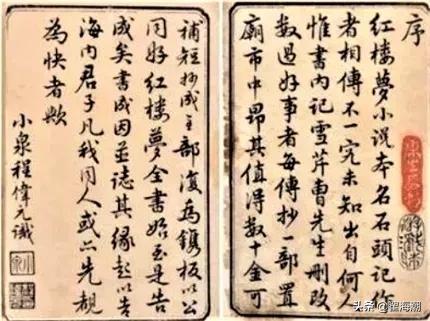 序
紅樓夢小說本名石頭記作
者相傳不一究未知出自何人
惟書內記雪芹曹先生刪改
數過好事者每傳抄一部置
廟市中昂其值得數十金可
補短抄成全部復爲鐫板以公
同好紅樓夢全書始至是告
成矣書成因並誌其緣起以告
海內君子凡我同人或亦先覩
為快者歟
小泉程偉元識
头条 @翟海潮